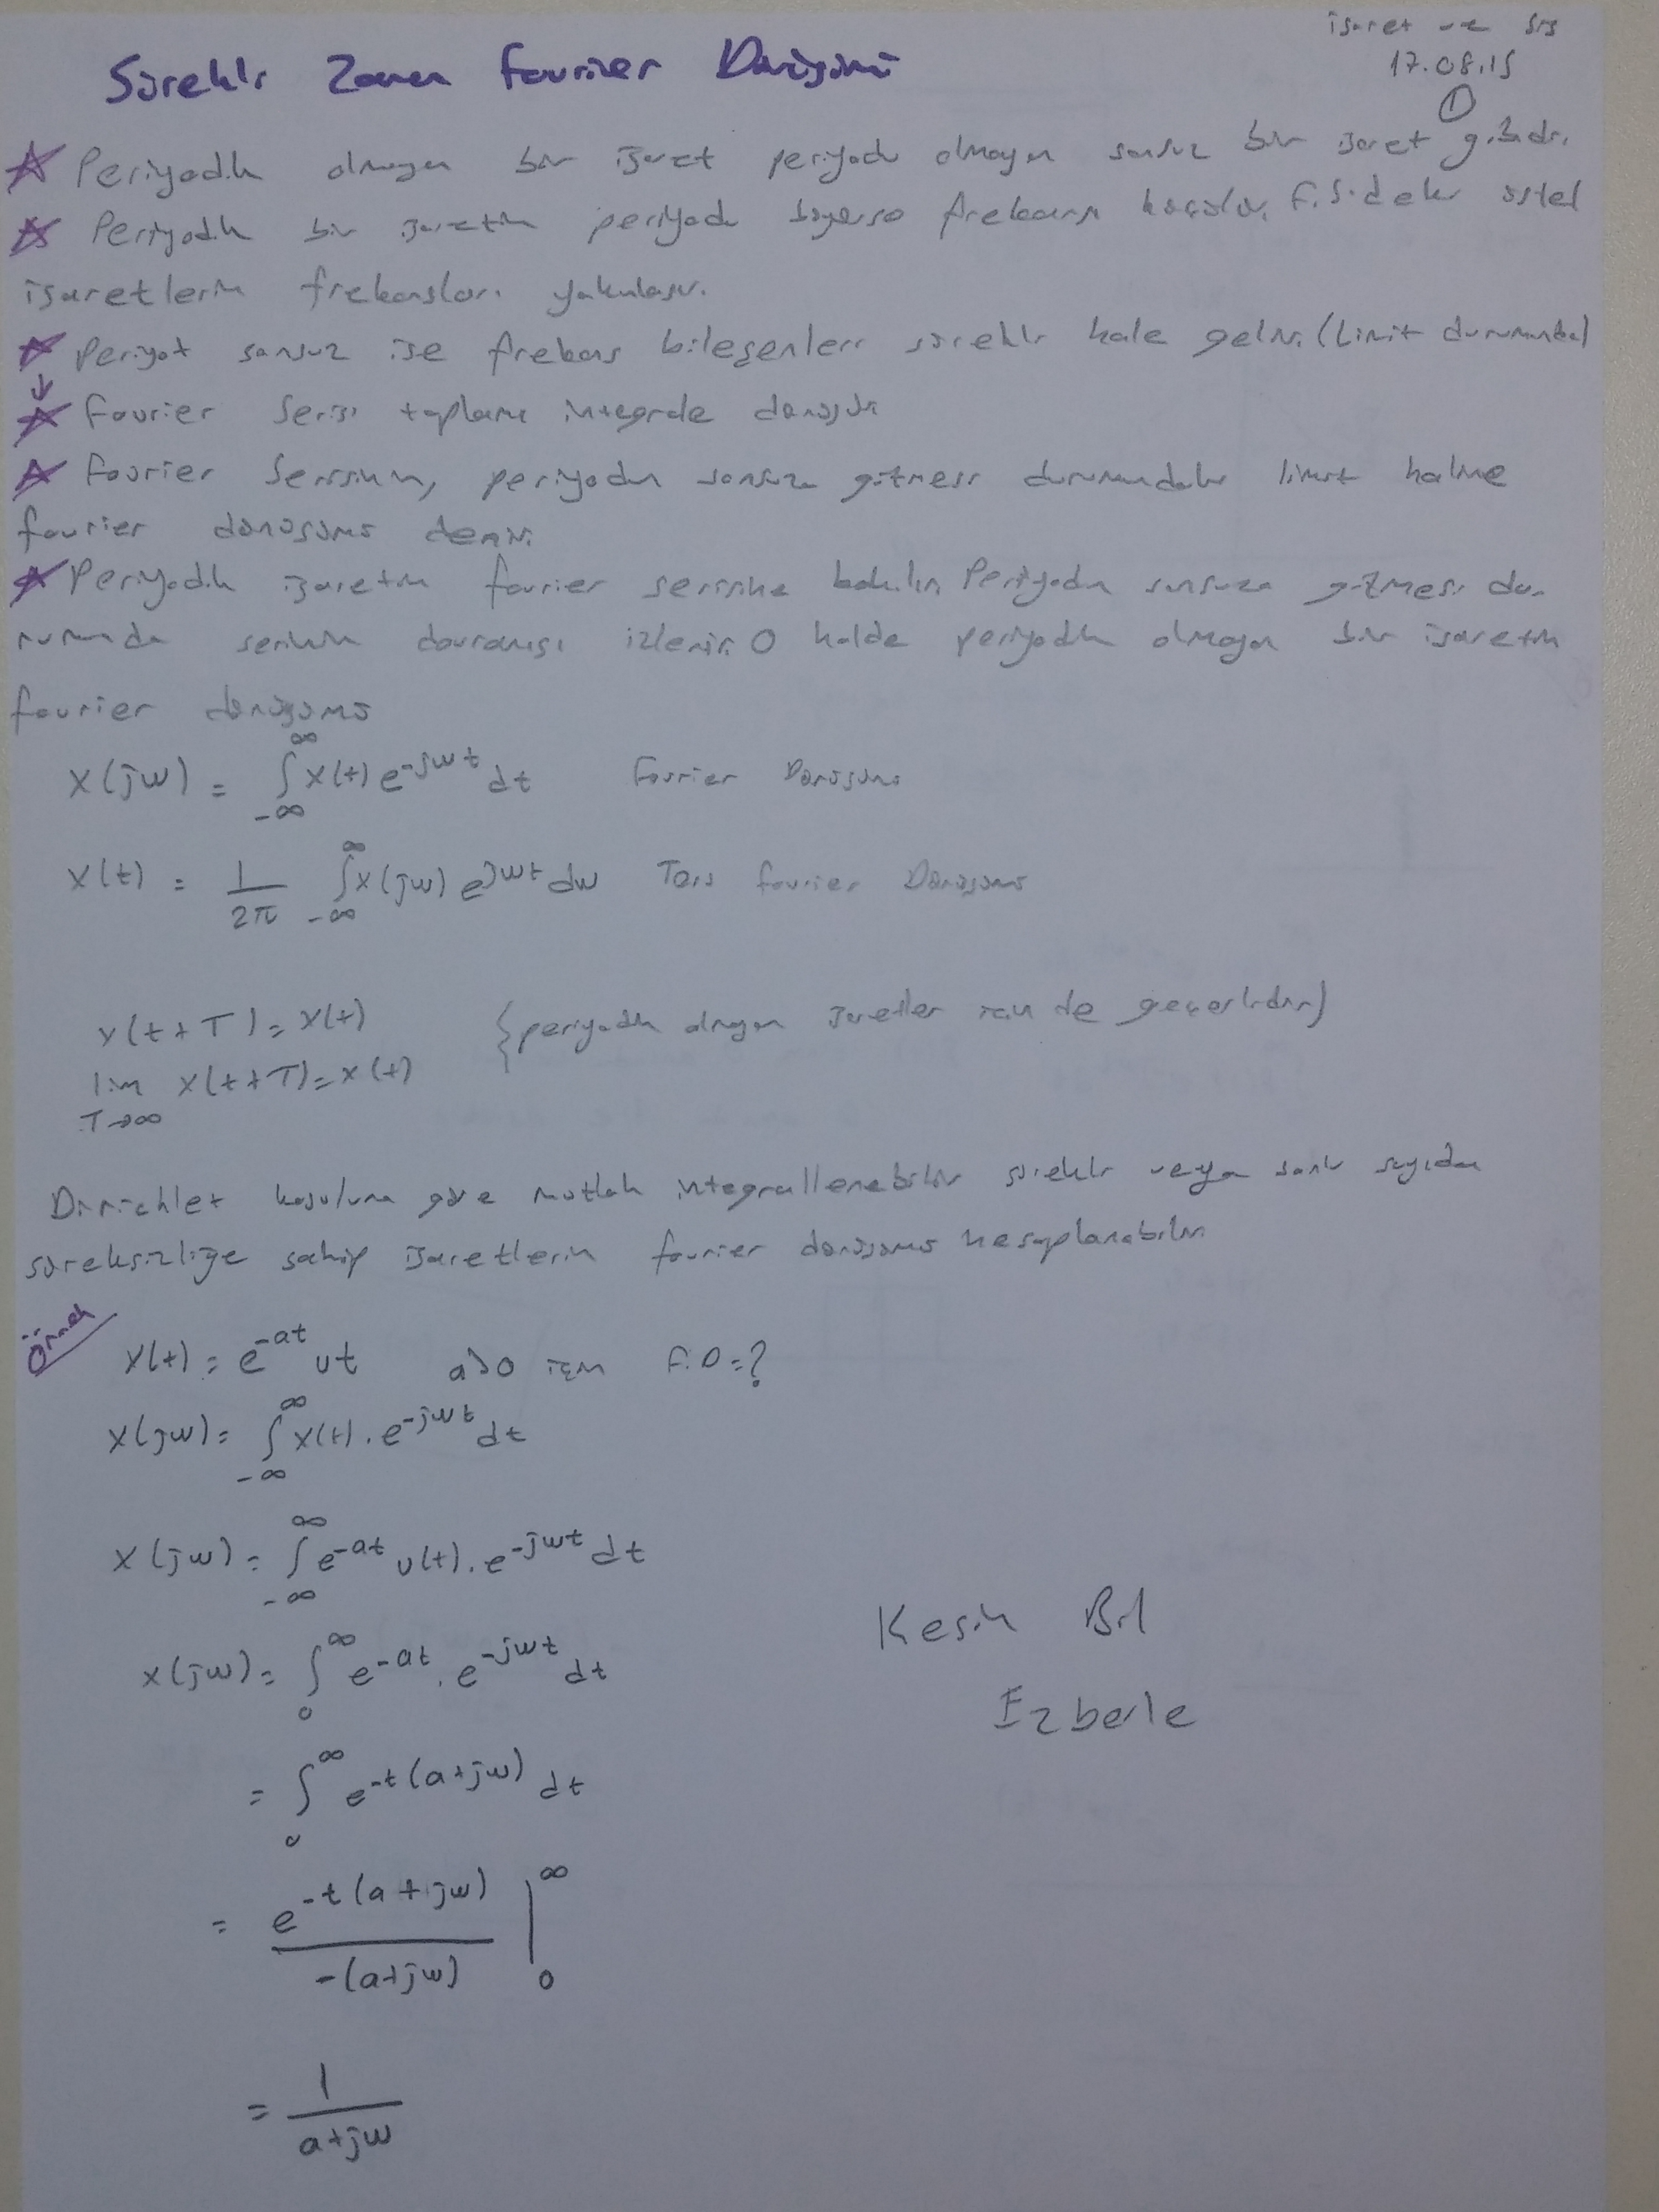 işaret ve sis
17.08.15
1
Sürekli Zaman Fourier Dönüşümü
Periyodik olmayan bir işaret periyodu olmayan sonsuz bir işaret gibidir.
Periyodik bir işaretin periyodu büyürse frekansı küçülür. F.S.deki üstel
işaretlerin frekansları yakınlaşır.
Periyot sonsuz ise frekans bileşenleri sürekli hale gelir. (Limit durumunda)
↓
Fourier Serisi toplamı integrale dönüşür
Fourier Serisinin, periyodun sonsuza gitmesi durumundaki limit haline
fourier dönüşümü denir.
Periyodik işaretin fourier serisine bakılır. Periyodun sonsuza gitmesi du-
rumunda serinin davranışı izlenir. O halde periyodik olmayan bir işaretin
fourier dönüşümü
X(jw) = ∫_{-∞}^{∞} x(t) e^{-jwt} dt Fourier Dönüşümü
x(t) = 1/2π ∫_{-∞}^{∞} x(jw) e^{jwt} dw Ters fourier Dönüşümü
x(t+T) = x(t) {periyodik olmayan işaretler için de geçerlidir}
lim_{T→∞} x(t+T) = x(t)
Dirichlet koşuluna göre mutlak integrallenebilir sürekli veya sonlu sayıda
süreksizliğe sahip işaretlerin fourier dönüşümü hesaplanabilir
Örnek
x(t) = e^{-at} ut a>0 için F.D=?
X(jw) = ∫_{-∞}^{∞} x(t) . e^{-jwt} dt
X(jw) = ∫_{-∞}^{∞} e^{-at} u(t) . e^{-jwt} dt
X(jw) = ∫_{0}^{∞} e^{-at} . e^{-jwt} dt
Kesin Bil
Ezberle
= ∫_{0}^{∞} e^{-t(a+jw)} dt
= e^{-t(a+jw)} / -(a+jw) |_{0}^{∞}
= 1 / a+jw